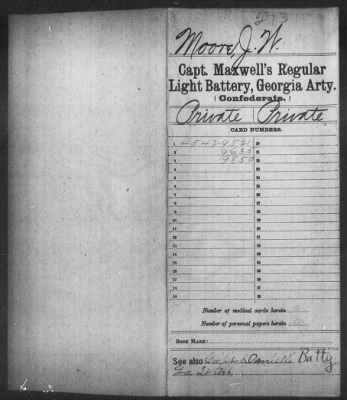 273
Moore, J. W.
Capt. Maxwell's Regular
Light Battery, Georgia Arty.
(Confederate.)
Private | Private
CARD NUMBERS.
1 45429521 20
2 9635 21
3 9850 22
4
5
6
7
8
9
10
11
12
13
14
15
16
Number of medical cards herein 0
Number of personal papers herein
BOOK MARK:
See also Capt. Daniell's Batty
Ga Lt. Art.